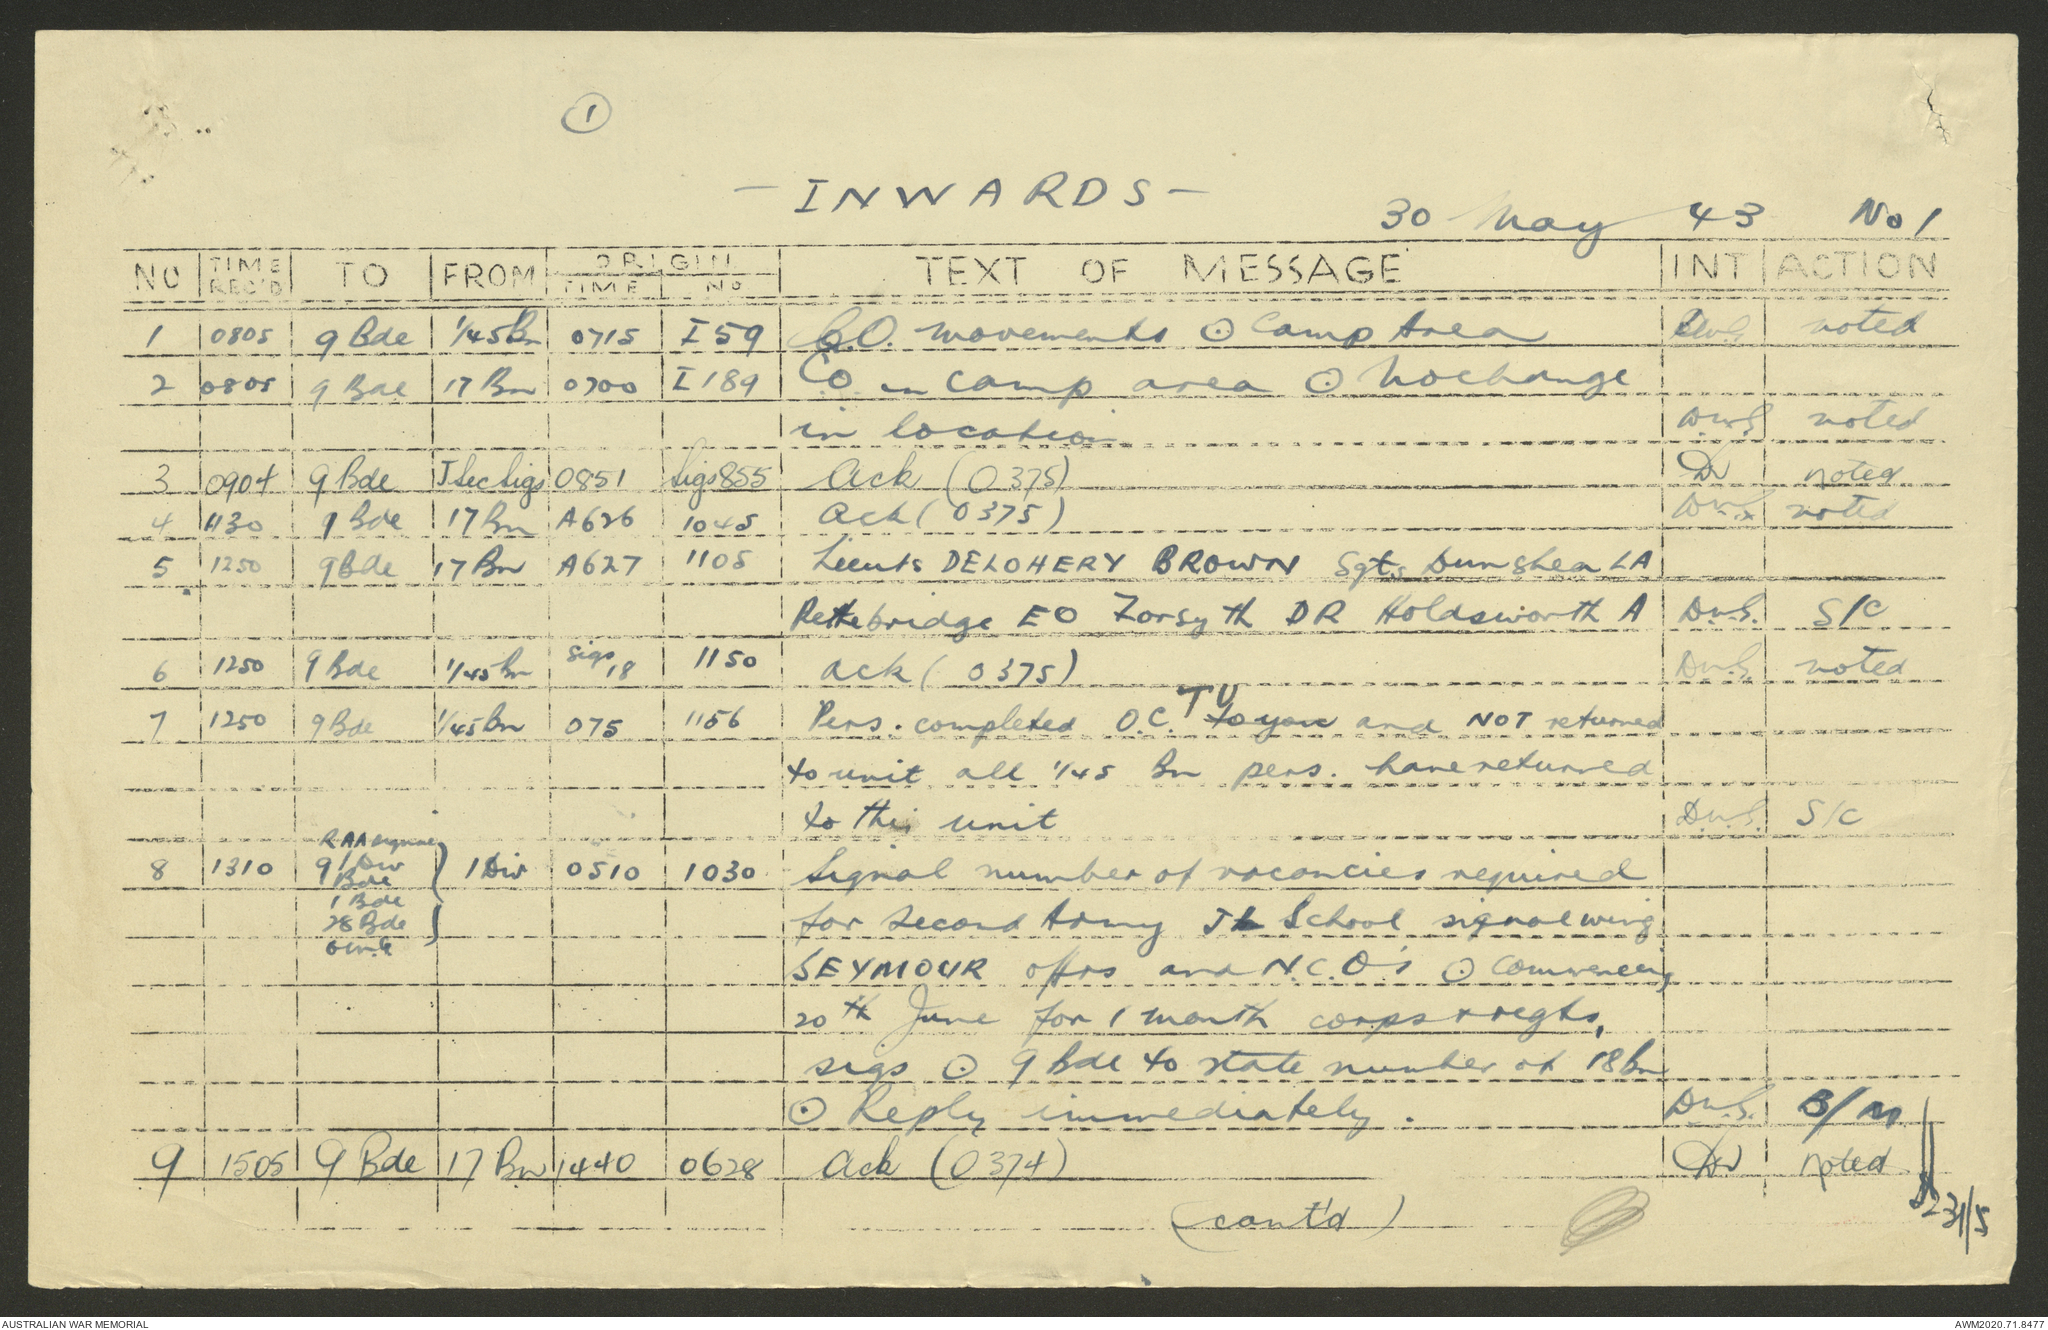 1
- INWARDS -
30 May 43 No 1
NO TIME REC'D TO FROM ORIGIN TIME NO TEXT OF MESSAGE INT ACTION
1 0805 9 Bde 1/45 Bn 0715 I 59 C.O. movements ⊙ Camp Area D.W.S. noted
2 0805 9 Bde 17 Bn 0700 I 189 C.O. in camp area ⊙ No change
in location D.W.S. noted
3 0904 9 Bde J Sec Sigs 0851 Sigs 855 Ack (0375) DW noted
4 1130 9 Bde 17 Bn A626 1045 ack (0375) noted
5 1250 9 Bde 17 Bn A627 1105 Lieuts DELOHERY BROWN Sgts Dunshea LA
Pettebridge EO Forsyth DR Holdsworth A D.W.S. S/C
6 1250 9 Bde 1/45 Bn Sigs 18 1150 ack (0375) D.W.S. noted
7 1250 9 Bde 1/45 Bn 075 1156 Pers. completed O.C. TU to you and NOT returned
to unit all 1/45 Bn pers. have returned
to this unit D.W.S. S/C
8 1310 RAA 1 Div 9 Bde 1 Bde 28 Bde 1 Div 0510 1030 Signal number of vacancies required
for Second Army School signal wing
SEYMOUR offrs and N.C.O's ⊙ Commencing
20th June for 1 month corps & regts,
sigs ⊙ 9 Bde to state number of 18 Bn
⊙ Reply immediately. D.W.S. B/M
9 1505 9 Bde 17 Bn 1440 0628 Ack (0374) DW noted
31/5
(cont'd)
AUSTRALIAN WAR MEMORIAL AWM2020.71.8477